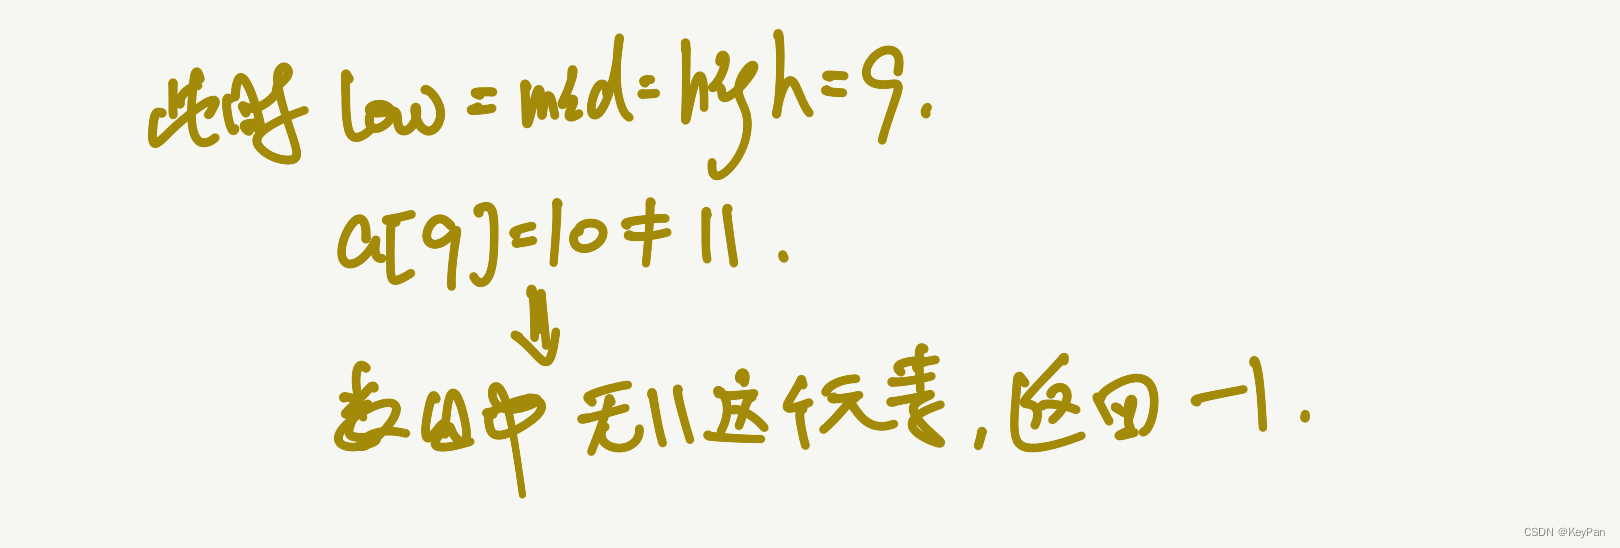 此时 low = mid = high = 9.
a[9] = 10 ≠ 11.
数组中无11这个元素,返回 -1.
CSDN @KeyPan